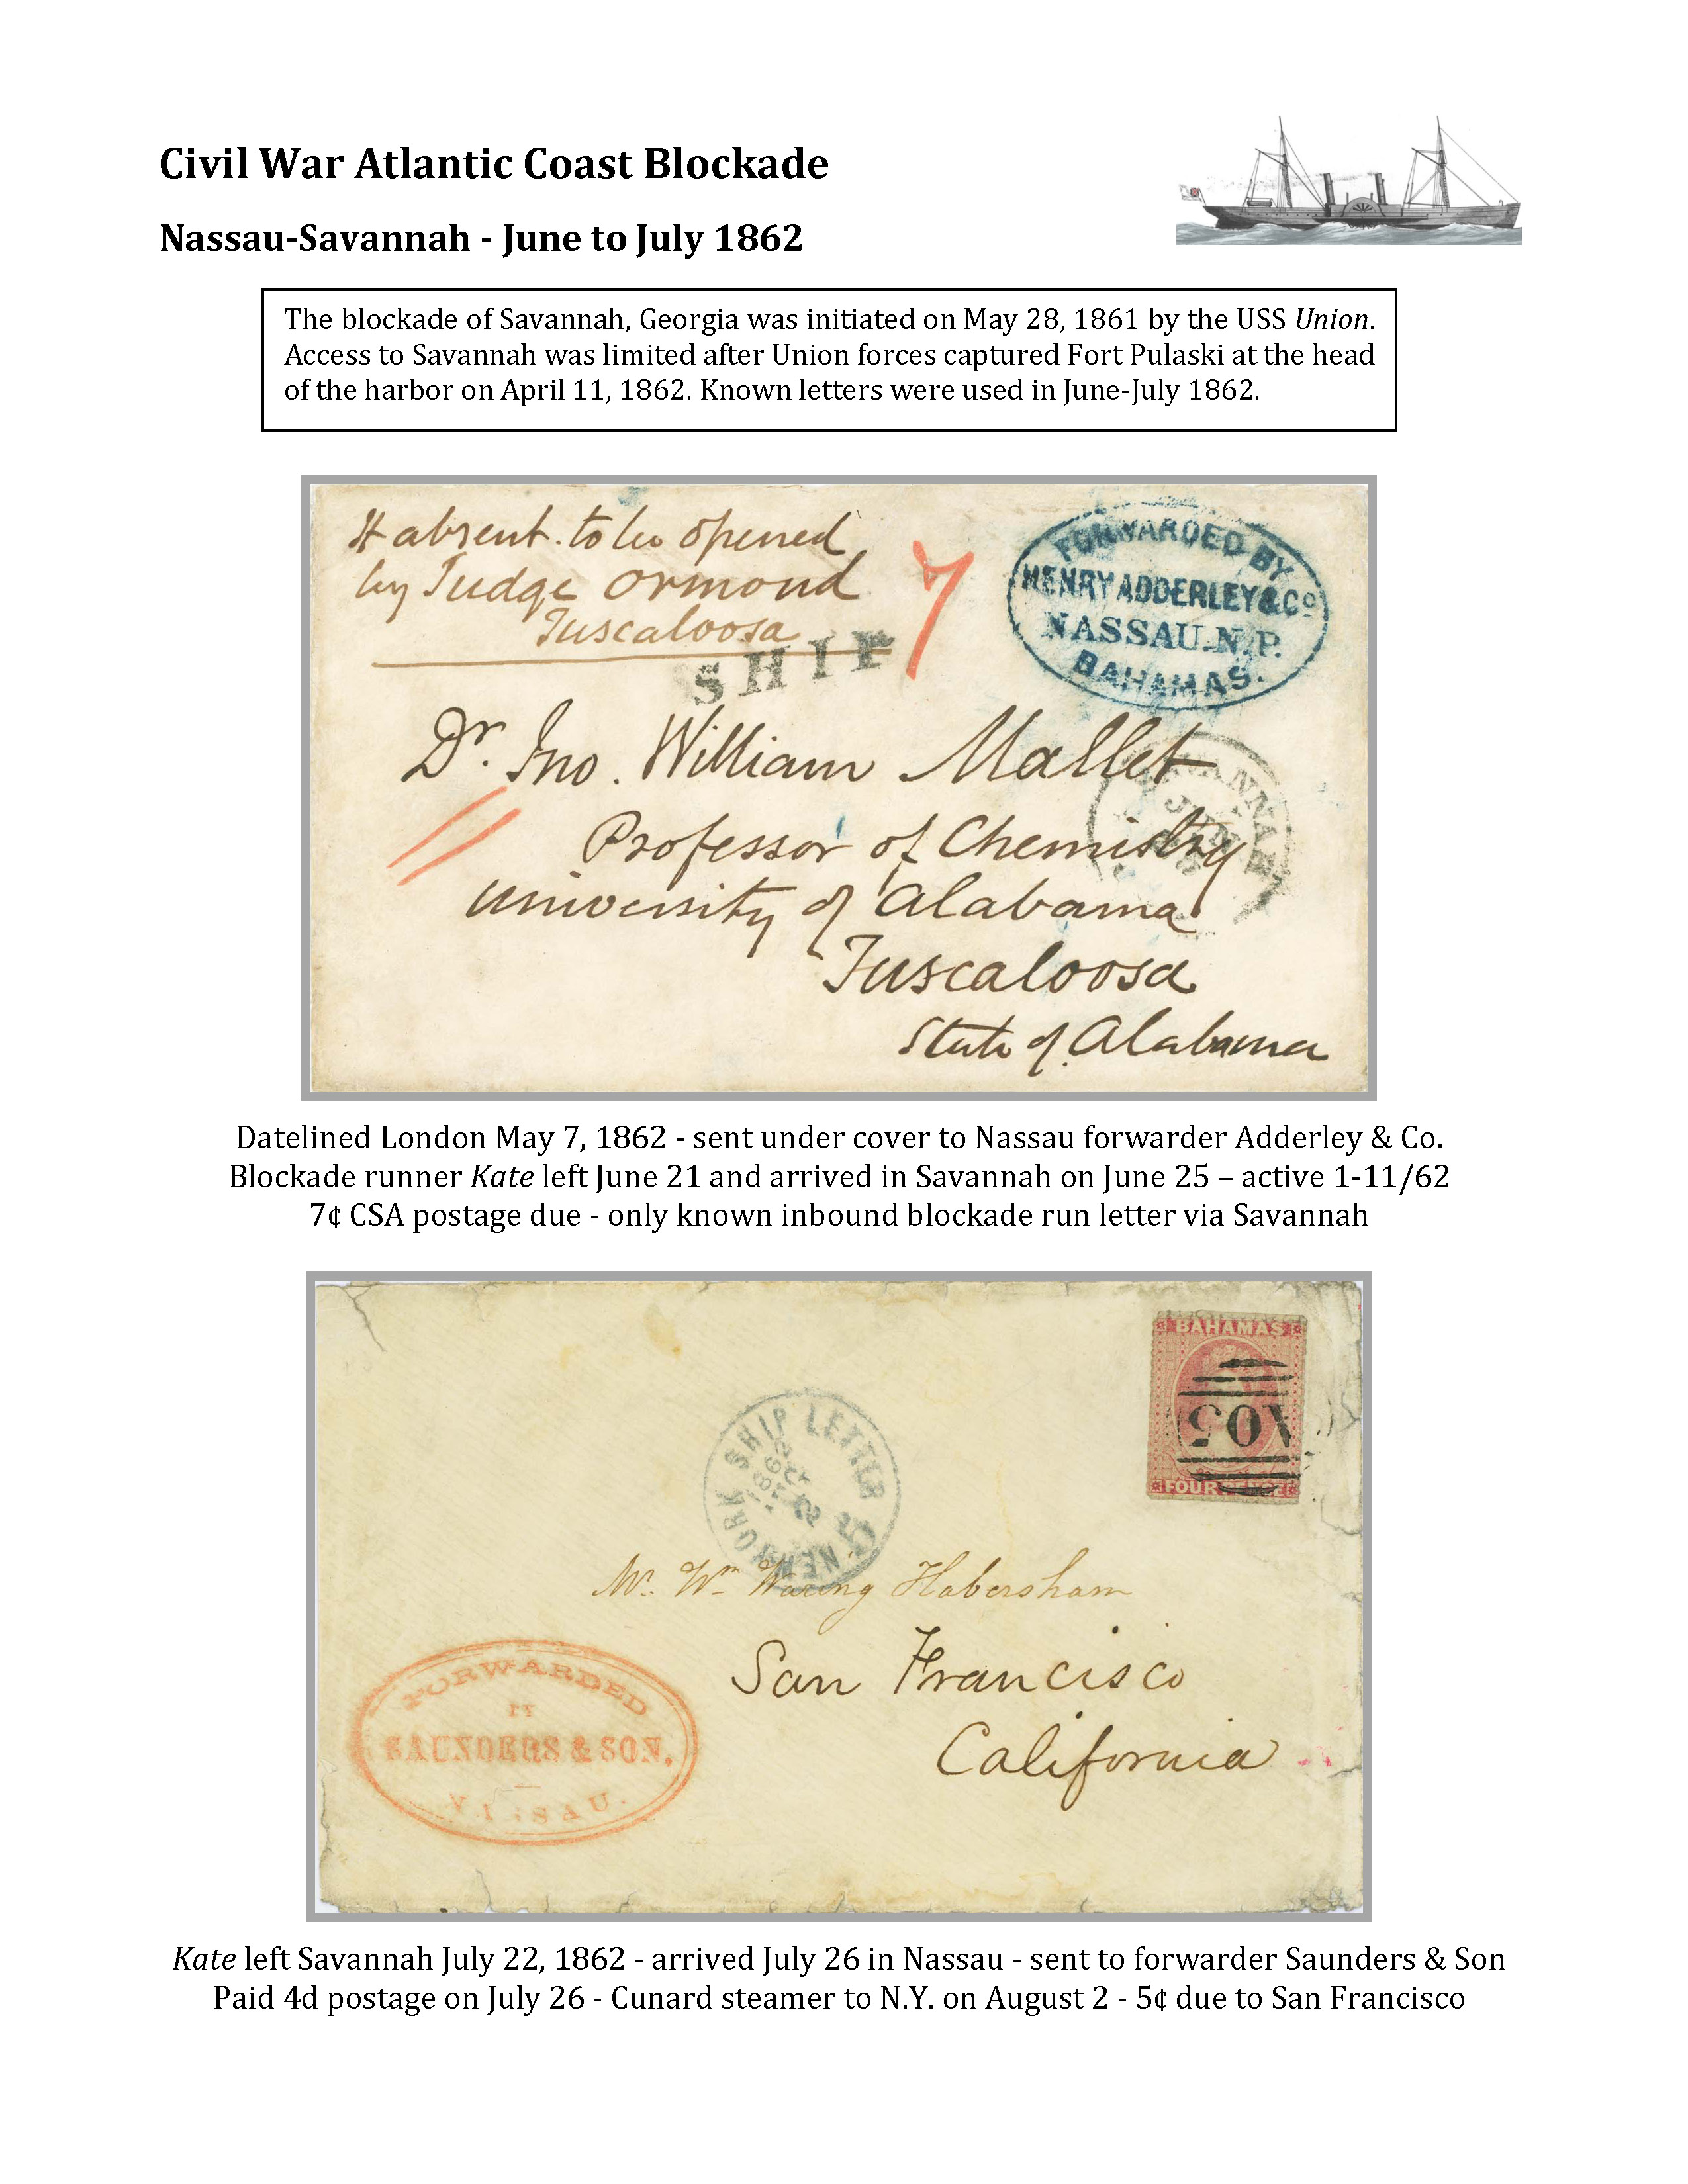 Civil War Atlantic Coast Blockade
Nassau-Savannah - June to July 1862
The blockade of Savannah, Georgia was initiated on May 28, 1861 by the USS Union.
Access to Savannah was limited after Union forces captured Fort Pulaski at the head
of the harbor on April 11, 1862. Known letters were used in June-July 1862.
If absent to be opened
by Judge Ormond
Tuscaloosa
7
SHIP
FORWARDED BY
HENRY ADDERLEY & Co
NASSAU. N. P.
BAHAMAS.
Dr. Jno. William Mallet
Professor of Chemistry
University of Alabama
Tuscaloosa
State of Alabama
Datelined London May 7, 1862 - sent under cover to Nassau forwarder Adderley & Co.
Blockade runner Kate left June 21 and arrived in Savannah on June 25 – active 1-11/62
7¢ CSA postage due - only known inbound blockade run letter via Savannah
BAHAMAS
A05
FOUR PENCE
NEW YORK SHIP LETTER
5
Mr. Wm Waring Habersham
San Francisco
California
FORWARDED
BY
SAUNDERS & SON,
NASSAU.
Kate left Savannah July 22, 1862 - arrived July 26 in Nassau - sent to forwarder Saunders & Son
Paid 4d postage on July 26 - Cunard steamer to N.Y. on August 2 - 5¢ due to San Francisco